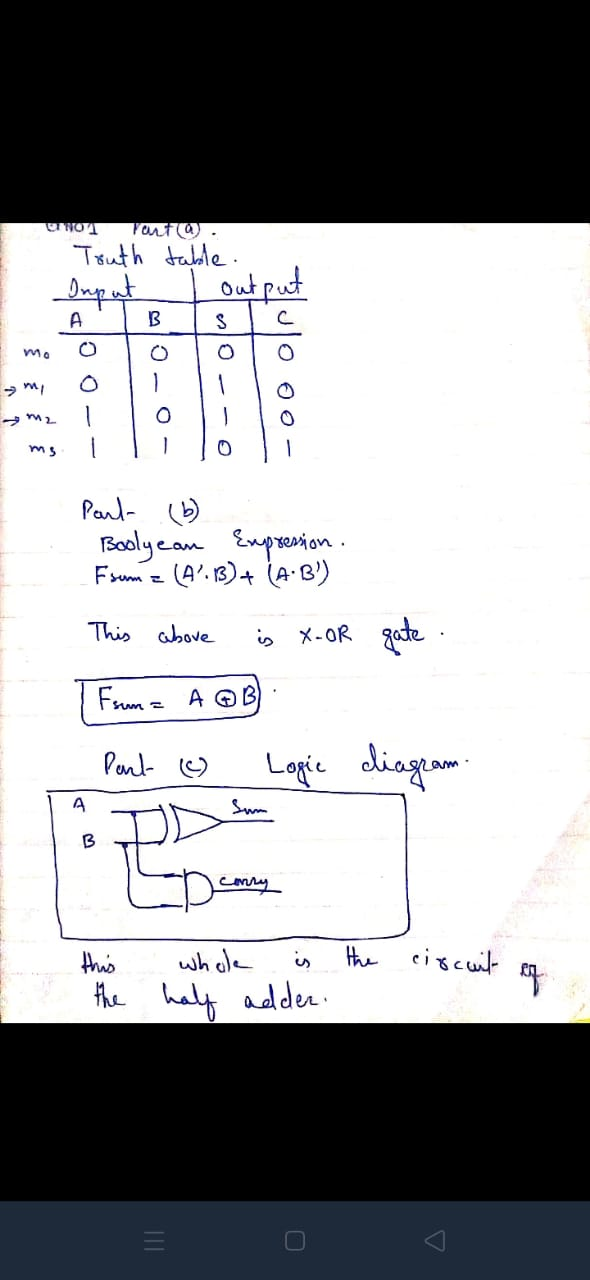 Part (a).
Truth table.
Input output
A B S C
m0 0 0 0 0
→ m1 0 1 1 0
→ m2 1 0 1 0
m3 1 1 0 1
Part (b)
Boolyean Expression.
Fsum = (A'.B)+(A.B')
This above is X-OR gate.
Fsum = A ⊕ B.
Part (c) Logic diagram.
A Sum
B
carry
this whole is the circuit of
the half adder.